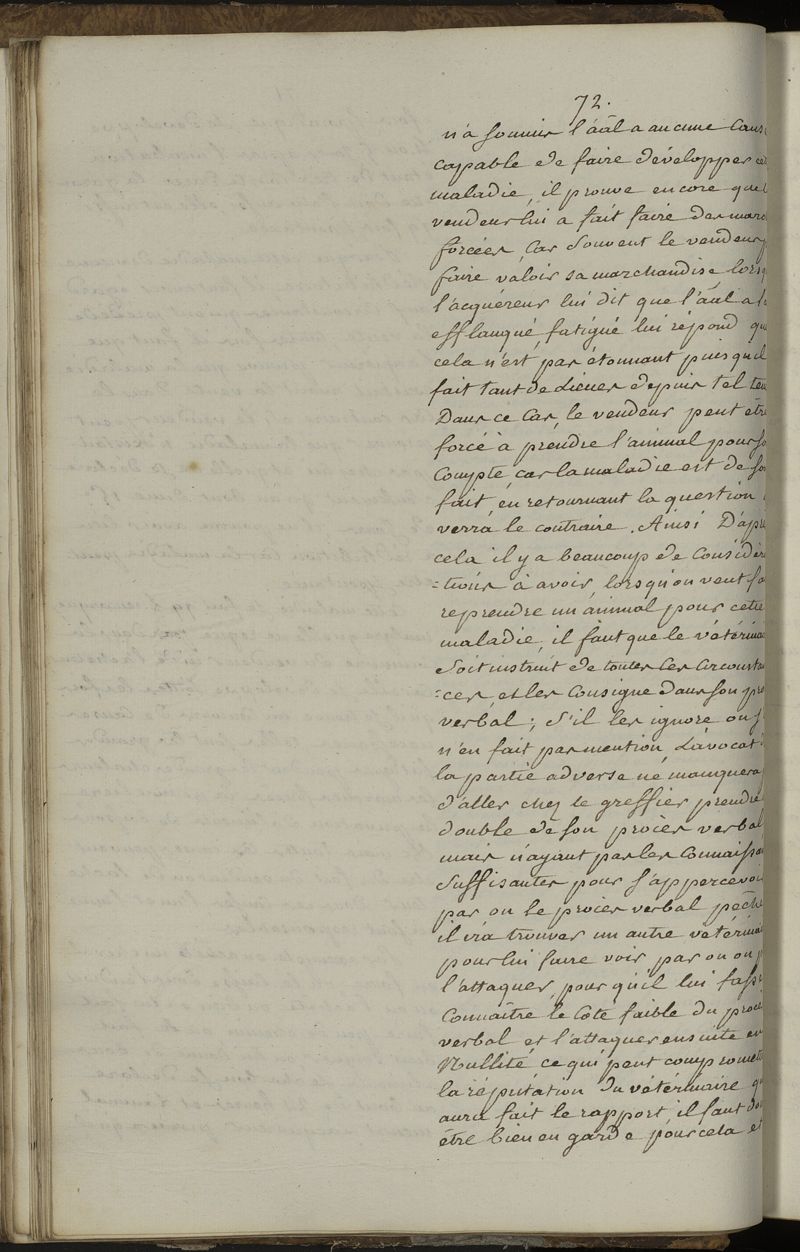 72.
n'a soumis l'aâl a aucune Caus
capable de faire développer ce
maladie, il prouve encore que l
vendeur lui a fait faire des marc
forcées, Car Souvent le vendeur p
faire valoir sa marchandise lorsq
l'acquéreur lui dit que l'aâl a l
efflanqué, fatigué lui répond qu
cela n'est pas étonnant puisqu'il
fait tant de Lieues depuis tel tem
Dans ce Cas, le vendeur peut être
forcé à prendre l'animal pour so
Compte, car la maladie est de so
fait, en retournant la question
verra le contraire. Ainsi D'apr
cela il y a beaucoup de Considér
=tions à avoir, lorsqu'on veut fa
reprendre un animal pour cette
maladie, il faut que le vétérinai
Soit instruit de toutes Ces Circonsta
=ces, et les Consigne dans son pro
verbal; S'il les ignore ou s'
n'en fait pas mention, L'avocat
la partie adverse ne manquera
d'aller chez le greffier prendre
double de son procès verbal
mais n'ayant pas les Connaissa
Suffisantes pour s'appercevoi
par ou le procès verbal pèche
il ira trouver un autre vétérinai
pour lui faire voir par ou on p
l'attaquer, pour qu'il lui fass
Connaître le Côté faible du proce
verbal et l'attaquer ensuite en
Nullité, ce qui peut compromett
la réputation du vétérinaire q
aura fait le rapport, il faut do
être bien en garde pour cela et